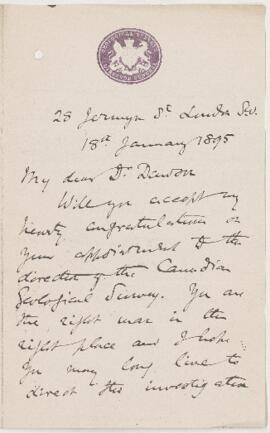 GEOLOGICAL SURVEY
DIRECTOR GENERAL
28 Jermyn St London S.W.
18th January 1895
My dear Dr. Dawson
Will you accept my
hearty congratulations on
your appointment to the
director of the Canadian
Geological Survey. You are
the right man in the
right place and I hope
you may long live to
direct the investigation